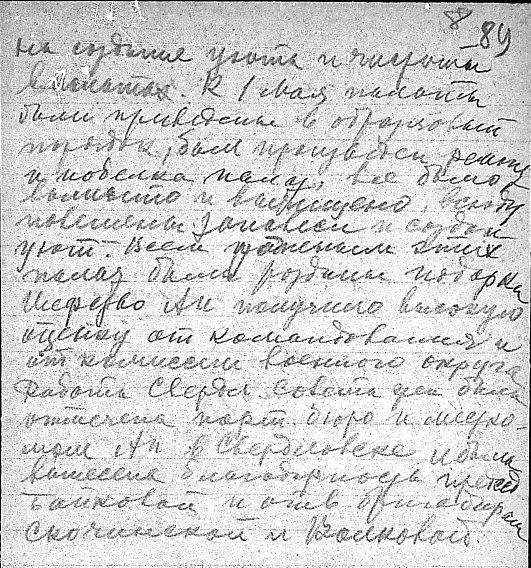 8
89
на создание уюта и чистоты
в палатах. К 1 Мая палаты
были приведены в образцовый
порядок, был произведен ремонт
и побелка палат, все было
вымыто и вычищено, всюду
повешены занавеси и создан
уют. Всем раненым этих
палат были розданы подарки
Шефство АН получило высокую
оценку от командования и
от комиссии военного округа
Работа Свердл. Совета жен была
отмечена парт. бюро и местко-
мом АН в Свердловске и была
вынесена благодарность пред
Банковой и отв. бригадирам
Скочинской и Волковой.